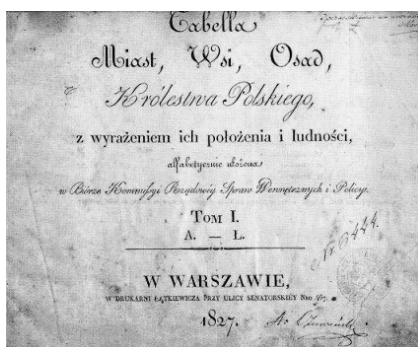 Tabella
Miast, Wsi, Osad,
Królestwa Polskiego,
z wyrażeniem ich położenia i ludności,
alfabetycznie ułożona
w Biórze Kommissyi Rządowéy Spraw Wewnętrznych i Policyi.
Tom I.
A. — L.
Nr 6444.
W WARSZAWIE,
W DRUKARNI ŁĄTKIEWICZA PRZY ULICY SENATORSKIÉY Nro
1827.